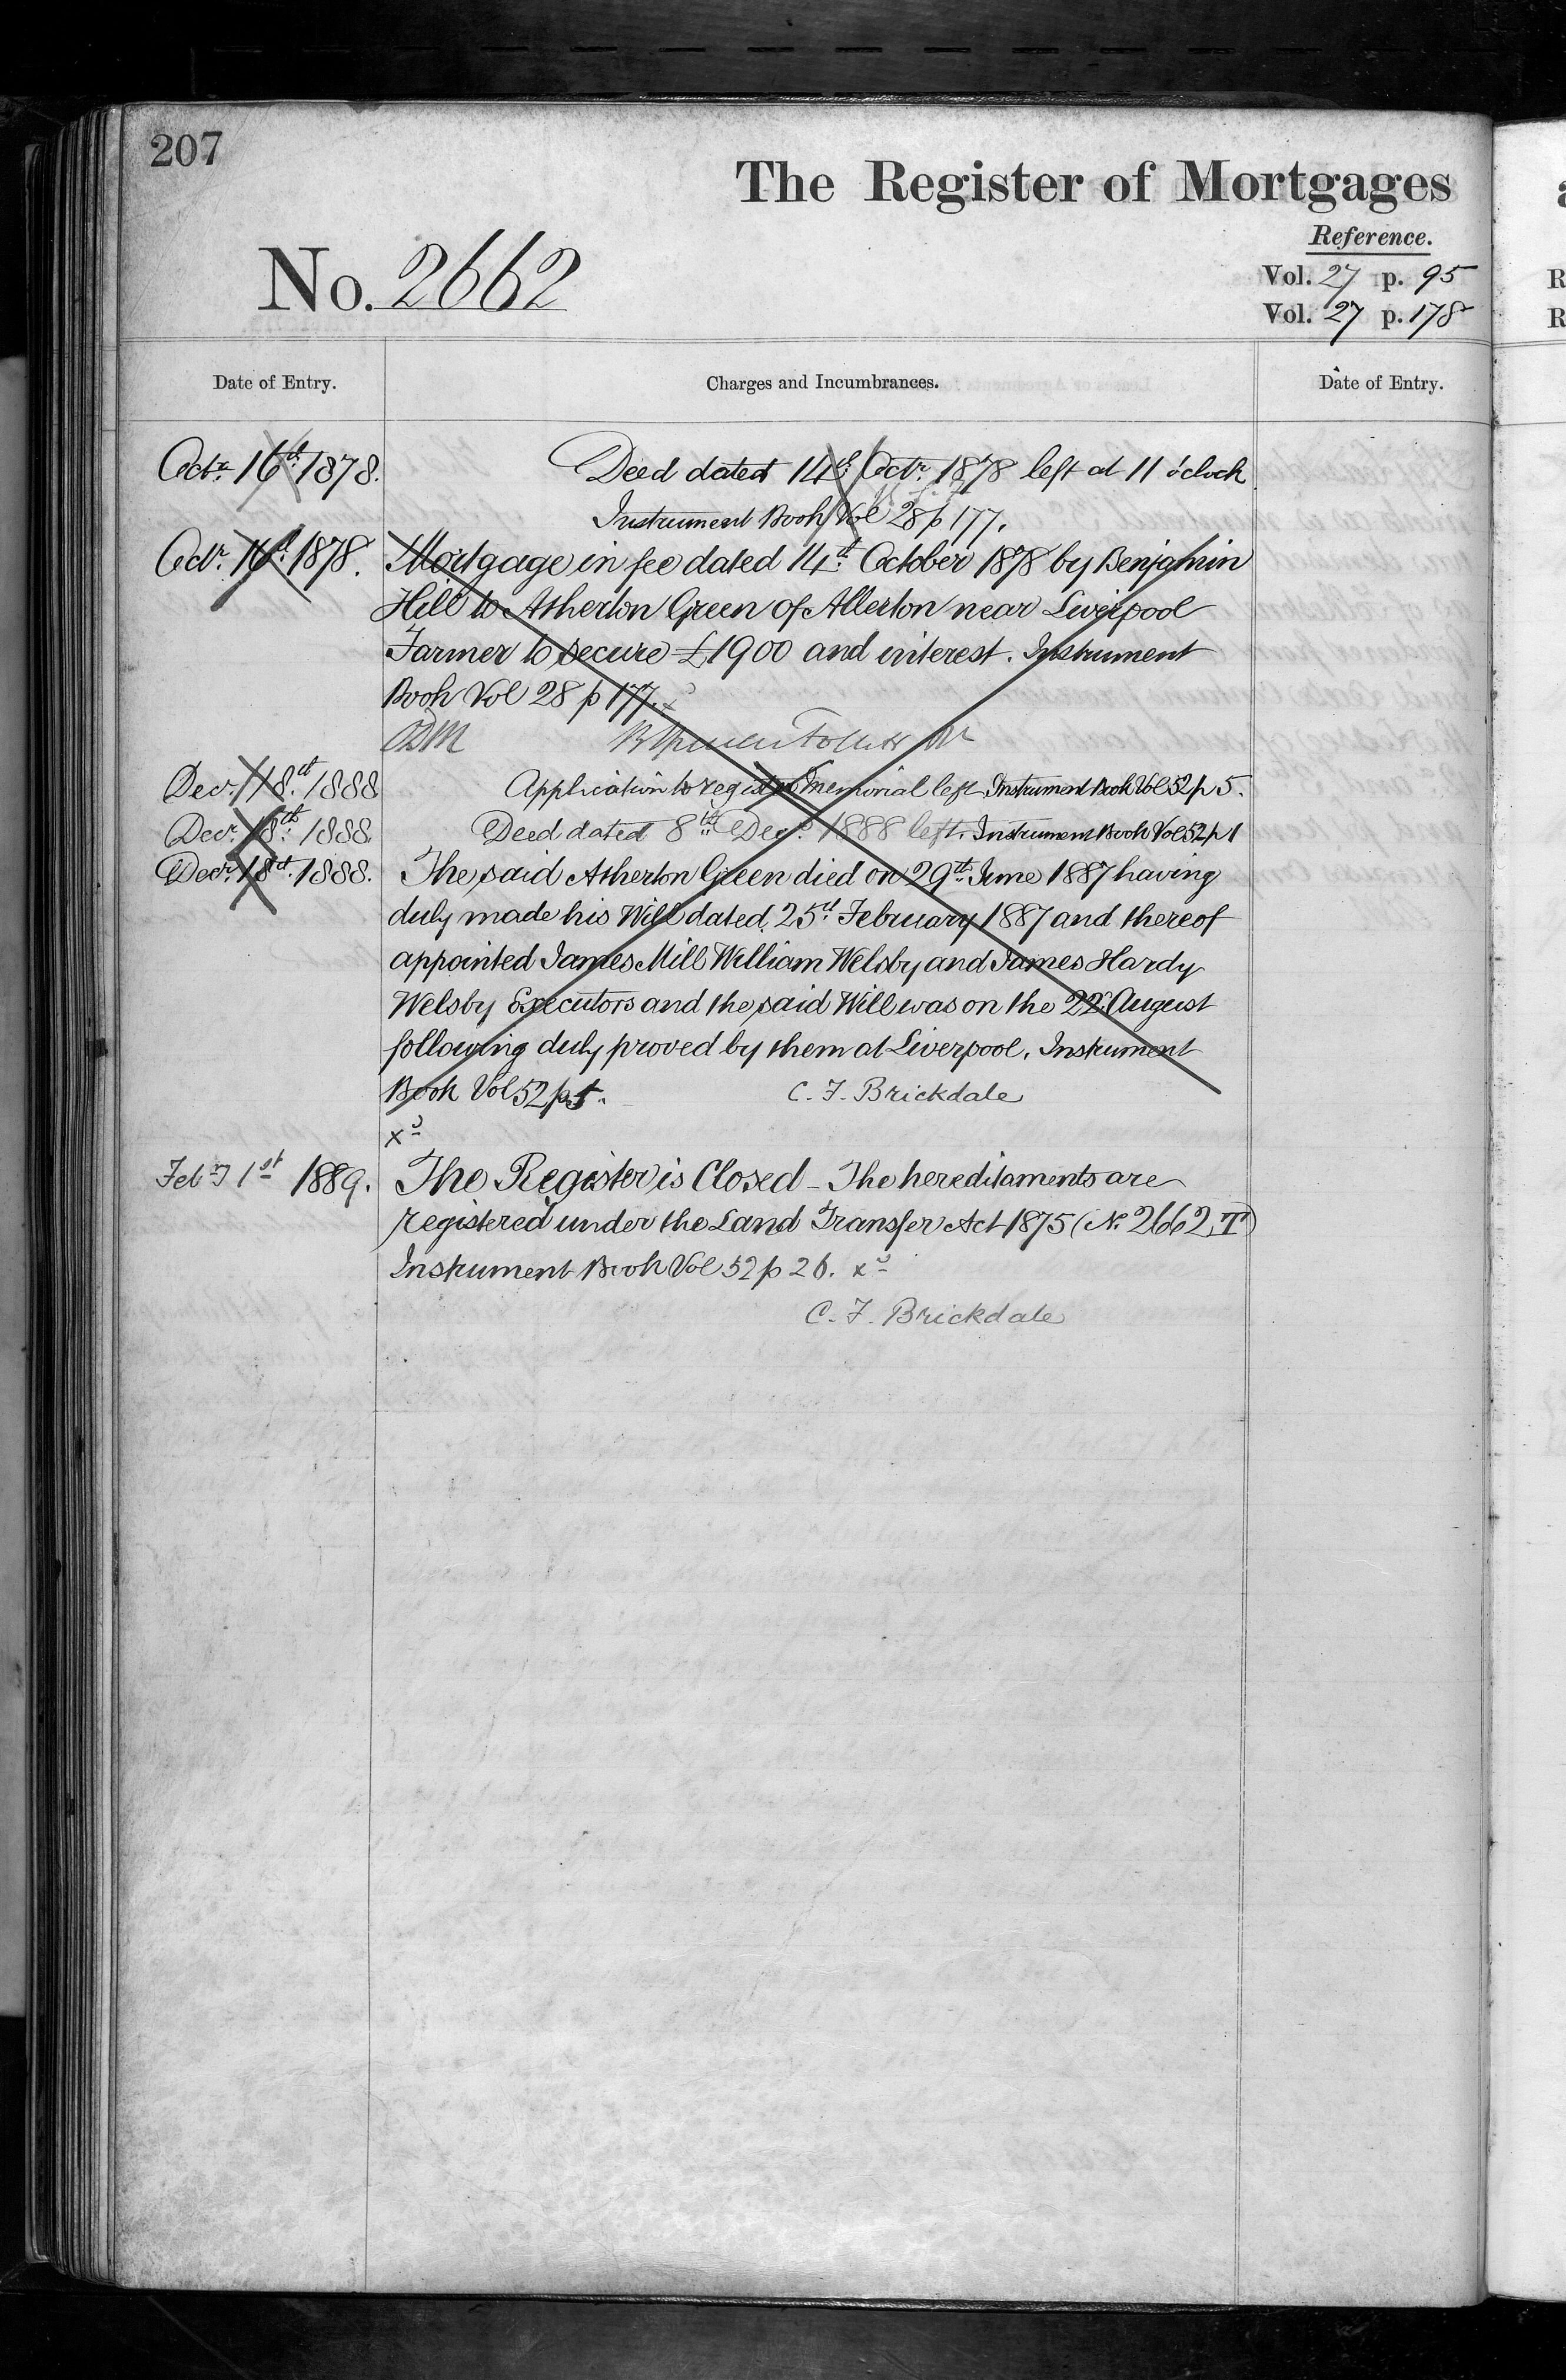 207
The Register of Mortgages
Reference.
No. 2662
Vol. 27 p. 95
Vol. 27 p. 178
Date of Entry.
Charges and Incumbrances.
Date of Entry.
Octr. 16th 1878.
Deed dated 14th Octr. 1878 left at 11 o'clock
Instrument Book Vol 28 p 177.
Octr. 16th 1878.
Mortgage in fee dated 14th October 1878 by Benjamin
Hill to Atherton Green of Allerton near Liverpool
Farmer to secure £1900 and interest. Instrument
Book Vol 28 p 177.
Decr. 18th 1888
Application to register Memorial left Instrument Book Vol 52 p 5.
Decr. 18th 1888.
Deed dated 8th Decr. 1888 left. Instrument Book Vol 52 p 1
Decr. 18th 1888.
The said Atherton Green died on 29th June 1887 having
duly made his Will dated 25th February 1887 and thereof
appointed James Mill William Welsby and James Hardy
Welsby Executors and the said Will was on the 22d August
following duly proved by them at Liverpool. Instrument
Book Vol 52 p 5.
C. F. Brickdale
xd
Feby 1st 1889.
The Register is Closed - The hereditaments are
registered under the Land Transfer Act 1875 (No. 2662 T)
Instrument Book Vol 52 p 26. xd
C. F. Brickdale